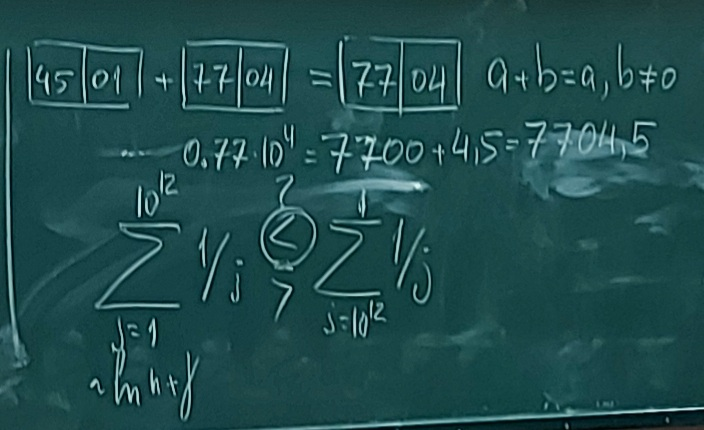 45 01 + 77 04 = 77 04 a+b=a, b≠0
0.77·10⁴ = 7700+4,5=7704,5
10¹² ? 1
∑ 1/j < ∑ 1/j
j=1 > j=10¹²
ln n+γ